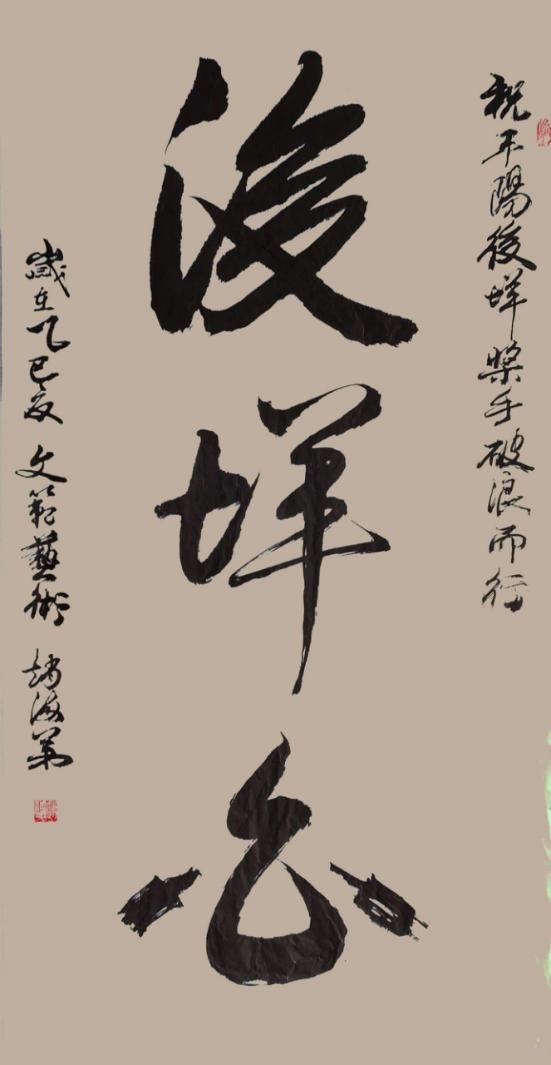 祝平陽後垟槳手破浪而行
後垟公
歲在乙巳夏 文範藝術 趙海第